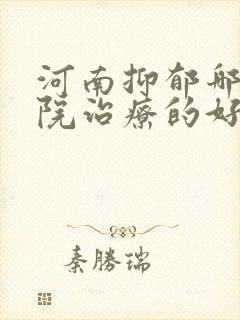 河南抑郁哪
院治疗的好
秦勝瑞